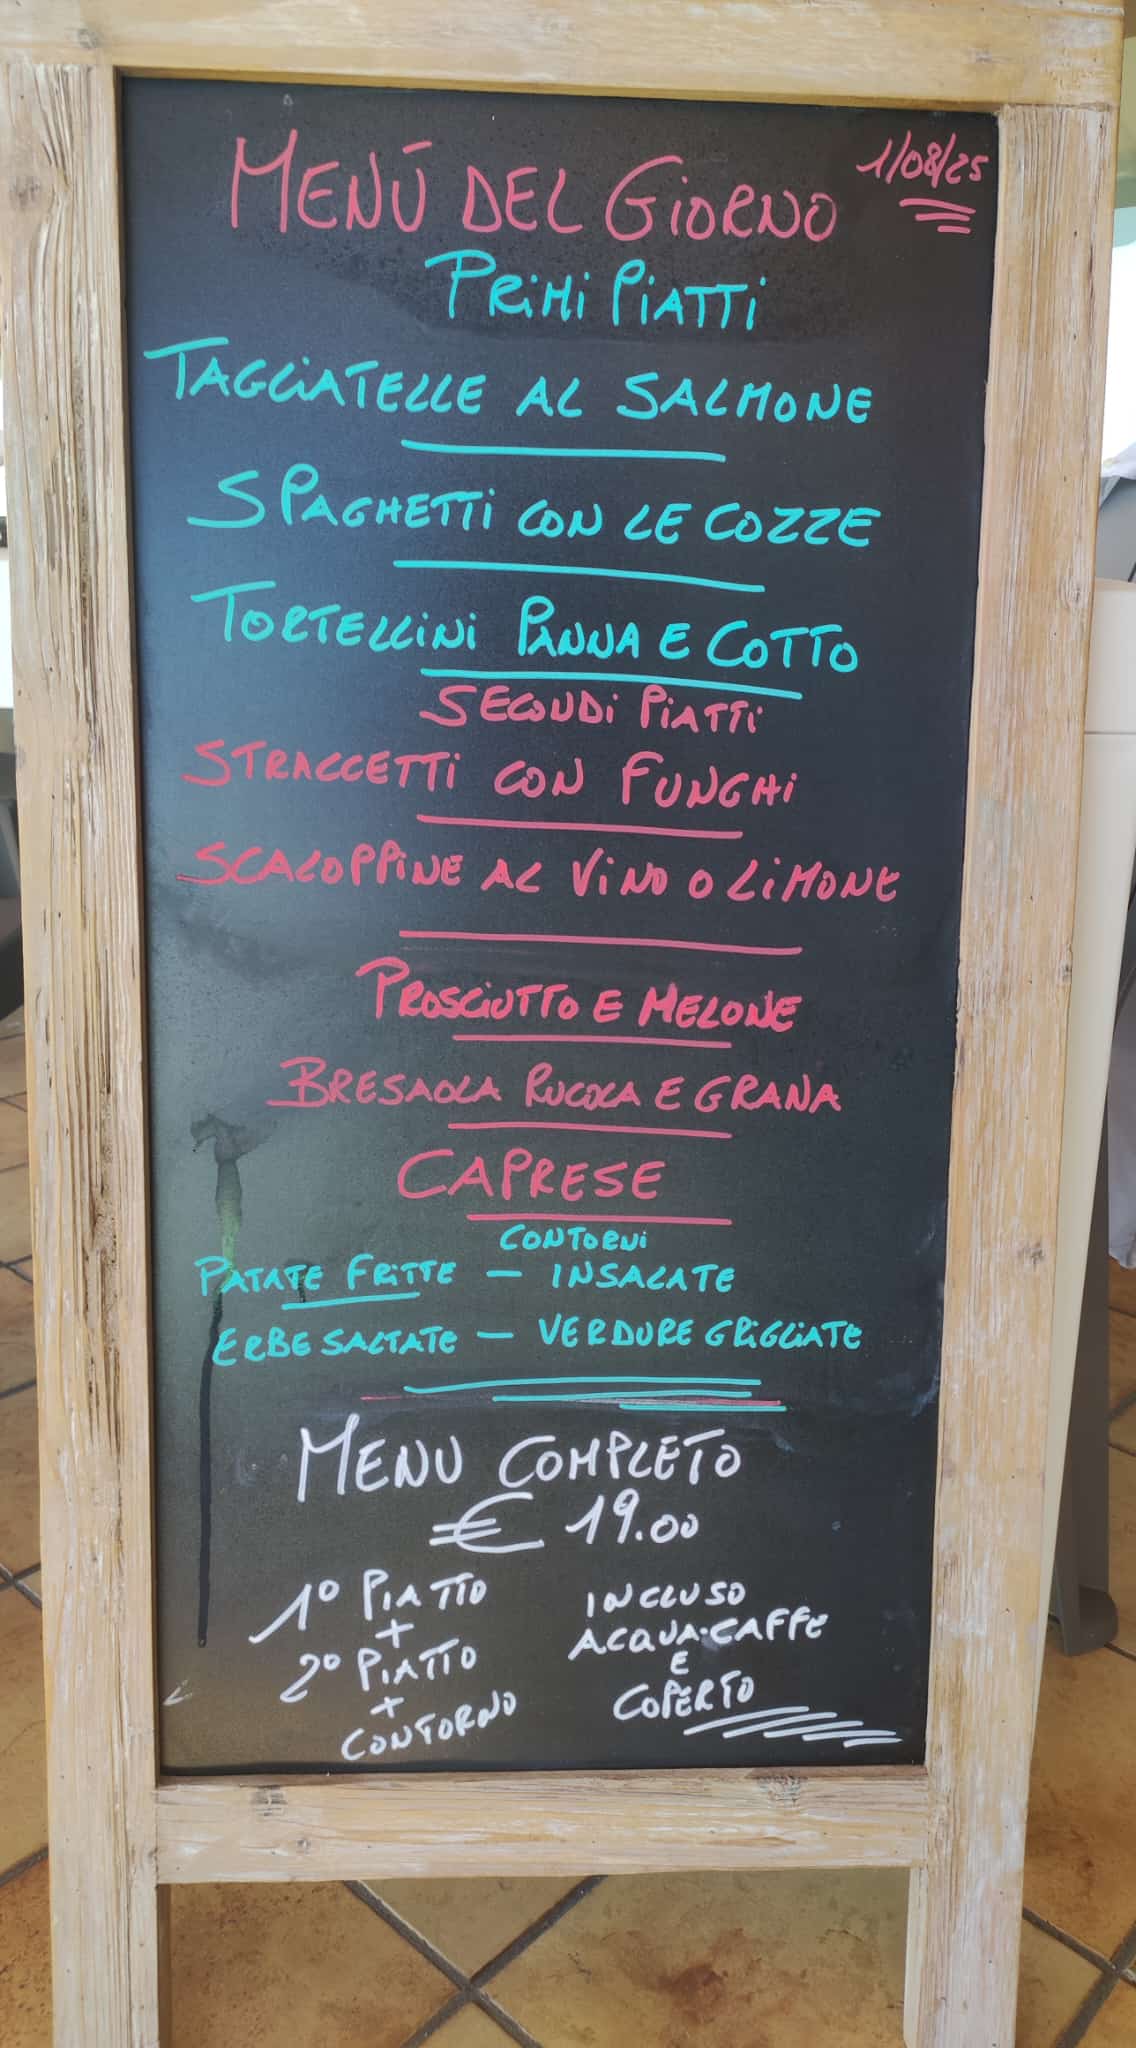 MENÚ DEL GIORNO 1/08/25
PRIMI PIATTI
TAGLIATELLE AL SALMONE
SPAGHETTI CON LE COZZE
TORTELLINI PANNA E COTTO
SECONDI PIATTI
STRACCETTI CON FUNGHI
SCALOPPINE AL VINO O LIMONE
PROSCIUTTO E MELONE
BRESAOLA RUCOLA E GRANA
CAPRESE
CONTORNI
PATATE FRITTE — INSALATE
ERBE SALTATE — VERDURE GRIGLIATE
MENU COMPLETO
€ 19.00
1° PIATTO
+
2° PIATTO
+
CONTORNO
INCLUSO
ACQUA-CAFFE
E
COPERTO